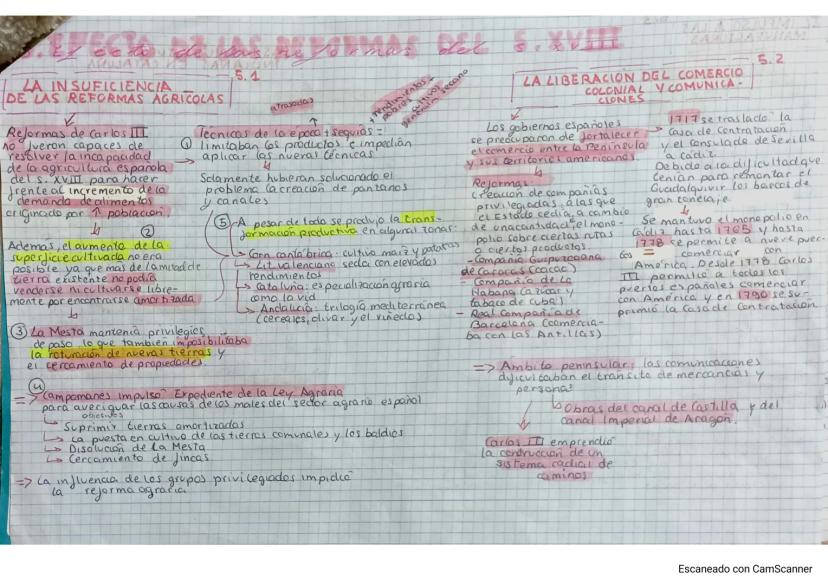 5. EFECTO DE LAS REFORMAS DEL S. XVIII
5.1
LA INSUFICIENCIA
DE LAS REFORMAS AGRÍCOLAS
Reformas de Carlos III
no fueron capaces de
resolver la incapacidad
de la agricultura española
del s. XVIII para hacer
frente al incremento de la
demanda de alimentos
originado por ↑ población
②
Además, el aumento de la
superficie cultivada no era
posible ya que más de la mitad de
tierra existente no podía
venderse ni cultivarse libre-
mente por encontrarse amortizada
③ La Mesta mantenía privilegios
de paso lo que también imposibilitaba
la roturación de nuevas tierras y
el cercamiento de propiedades.
④
=> Campomanes impulsó Expediente de la Ley Agraria
para averiguar las causas de los males del sector agrario español
objetivos
Suprimir tierras amortizadas
La puesta en cultivo de las tierras comunales y los baldíos
Disolución de La Mesta
Cercamiento de fincas
=> La influencia de los grupos privilegiados impidió
la reforma agraria
atrasadas
+ rendimientos
pobres
cultivos
secano
Técnicas de la época + sequías =
① limitaban los productos e impedían
aplicar las nuevas técnicas
Solamente hubieran solucionado el
problema la creación de pantanos
y canales
⑤ -A pesar de todo se produjo la trans-
formación productiva en algunas zonas:
Corn. cantábrica: cultivo maíz y patatas
Lit. valenciano seda con elevados
rendimientos
Cataluña: especialización agraria
como la vid
Andalucía: trilogía mediterránea
(cereales, olivar y el viñedos)
5.2
LA LIBERACIÓN DEL COMERCIO
COLONIAL Y COMUNICA-
CIONES
Los gobiernos españoles
se preocuparon de fortalecer
el comercio entre la Península
y sus territorios americanos
Reformas
Creación de compañías
privilegiadas, a las que
el Estado cedía, a cambio
de una cantidad, el mono-
polio sobre ciertas rutas
o ciertos productos
- Compañía Guipuzcoana
de Caracas (cacao)
- Compañía de la
Habana (azúcar y
tabaco de Cuba)
- Real Compañía de
Barcelona (comercia-
ba con las Antillas)
1717 se trasladó la
Casa de Contratación
y el consulado de Sevilla
a Cádiz
Debido a la dificultad que
tenían para remontar el
Guadalquivir los barcos de
gran tonelaje.
Se mantuvo el monopolio en
Cádiz hasta 1765 y hasta
1778 se permite a nueve puer-
tos = comerciar con
América. Desde 1778 Carlos
III permitió a todos los
puertos españoles comerciar
con América y en 1790 se su-
primió la Casa de Contratación
=> Ámbito peninsular: las comunicaciones
dificultaban el tránsito de mercancías y
personas
Obras del canal de Castilla y del
canal Imperial de Aragón.
Carlos III emprendió
la construcción de un
sistema radial de
caminos
Escaneado con CamScanner